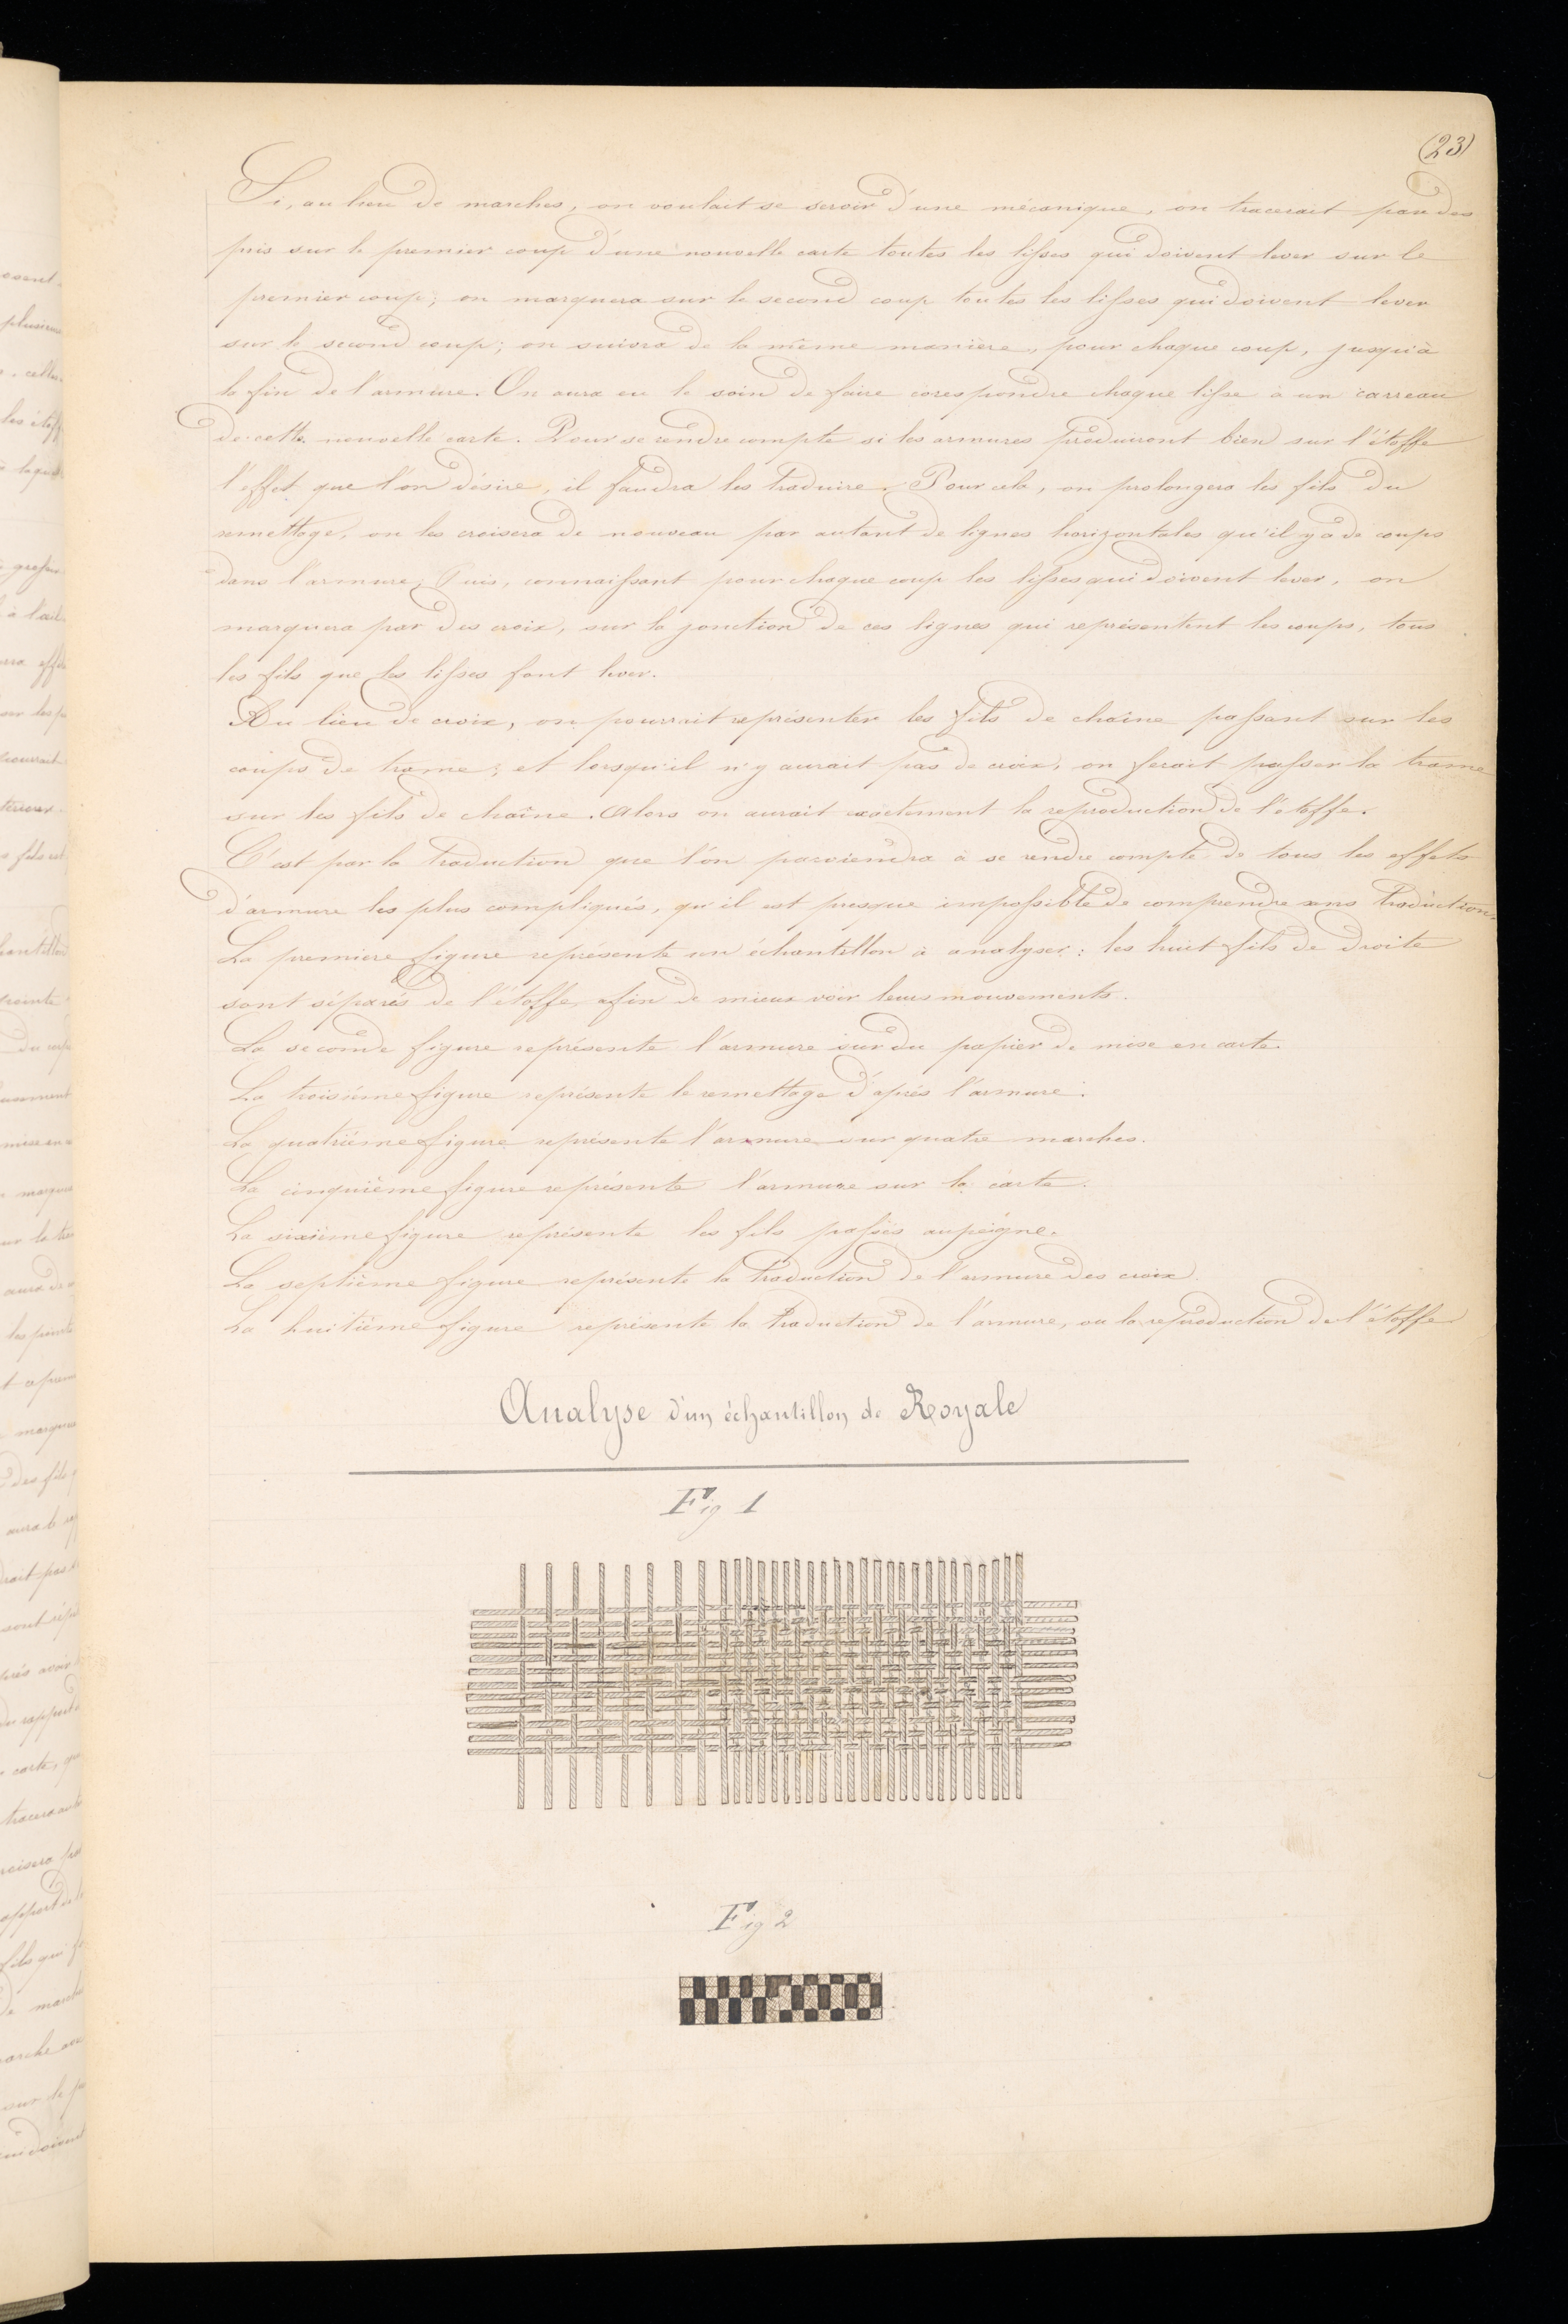 (23)
Si, au lieu de marches, on voulait se servir d'une mécanique, on tracerait par des
pris sur le premier coup d'une nouvelle carte toutes les lisses qui doivent lever sur le
premier coup; on marquera sur le second coup toutes les lisses qui doivent lever
sur le second coup; on suivra de la même manière, pour chaque coup, jusqu'à
la fin de l'armure. On aura eu le soin de faire corespondre chaque lisse à un carreau
de cette nouvelle carte. Pour se rendre compte si les armures produiront bien sur l'étoffe
l'effet que l'on désire, il faudra les traduire. Pour cela, on prolongera les fils du
remettage, on les croisera de nouveau par autant de lignes horizontales qu'il y a de coups
dans l'armure. Puis, connaissant pour chaque coup les lisses qui doivent lever, on
marquera par des croix, sur la jonction de ces lignes qui représentent les coups, tous
les fils que les lisses font lever.
Au lieu de croix, on pourrait représenter les fils de chaîne passant sur les
coups de trame; et lorsqu'il n'y aurait pas de croix, on ferait passer la trame
sur les fils de chaîne. Alors on aurait exactement la reproduction de l'étoffe.
C'est par la traduction que l'on parviendra à se rendre compte de tous les effets
d'armure les plus compliqués, qu'il est presque impossible de comprendre sans traduction.
La premiere figure représente un échantillon à analyser: les huit fils de droite
sont séparés de l'étoffe afin de mieux voir leurs mouvements.
La seconde figure représente l'armure sur du papier de mise en carte.
La troisième figure représente le remettage d'après l'armure.
La quatrième figure représente l'armure sur quatre marches.
La cinquième figure représente l'armure sur la carte.
La sixième figure représente les fils passés au peigne.
La septième figure représente la traduction de l'armure des croix.
La huitième figure représente la traduction de l'armure, ou la reproduction de l'étoffe
Analyse d'un échantillon de Royale
Fig 1
Fig 2